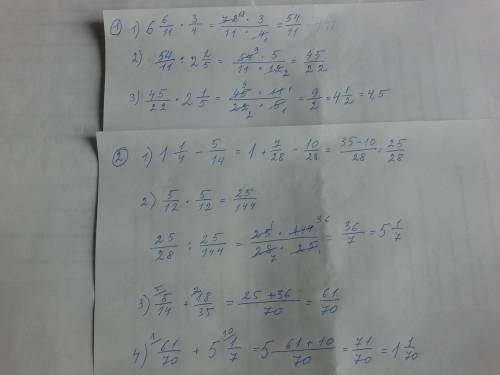 ① 1) 6 6/11 · 3/4 = 72 18 · 3 / 11 · 4 1 = 54/11
2) 54/11 : 2 2/5 = 54 9 · 5 / 11 · 12 2 = 45/22
3) 45/22 · 2 1/5 = 45 9 · 11 1 / 22 2 · 5 1 = 9/2 = 4 1/2 = 4,5
② 1) 1 1/4 - 5/14 = 1 + 7/28 - 10/28 = 35-10/28 = 25/28
2) 5/12 · 5/12 = 25/144
25/28 : 25/144 = 25 1 · 144 36 / 28 7 · 25 1 = 36/7 = 5 1/7
3) 5/ 5/14 + 2/ 18/35 = 25+36/70 = 61/70
4) 1/ 61/70 + 5 10/ 1/7 = 5 61+10/70 = 71/70 = 1 1/70